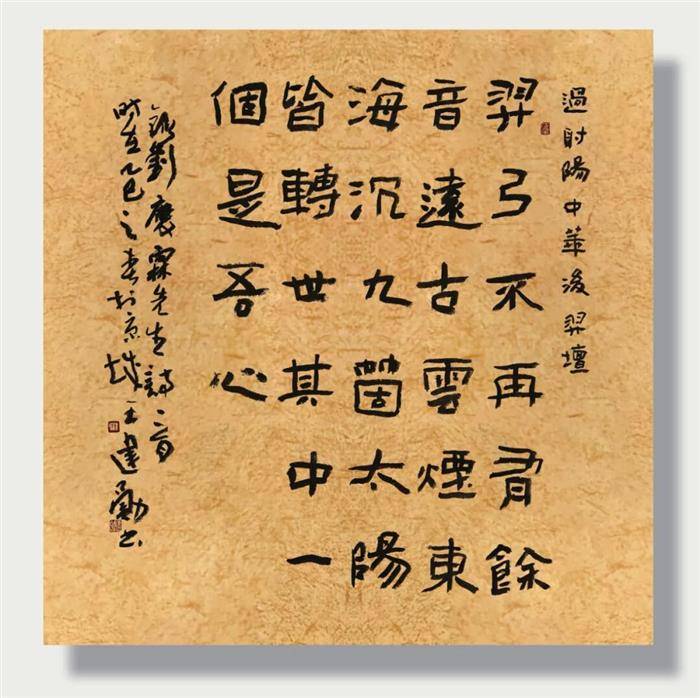 過射陽中華後羿壇
羿弓不再有餘
音遠古雲煙東
海沉九箇太陽
皆轉世其中一
個是吾心
錄劉慶霖先生詩一首
時在乙巳之春於京城王建書